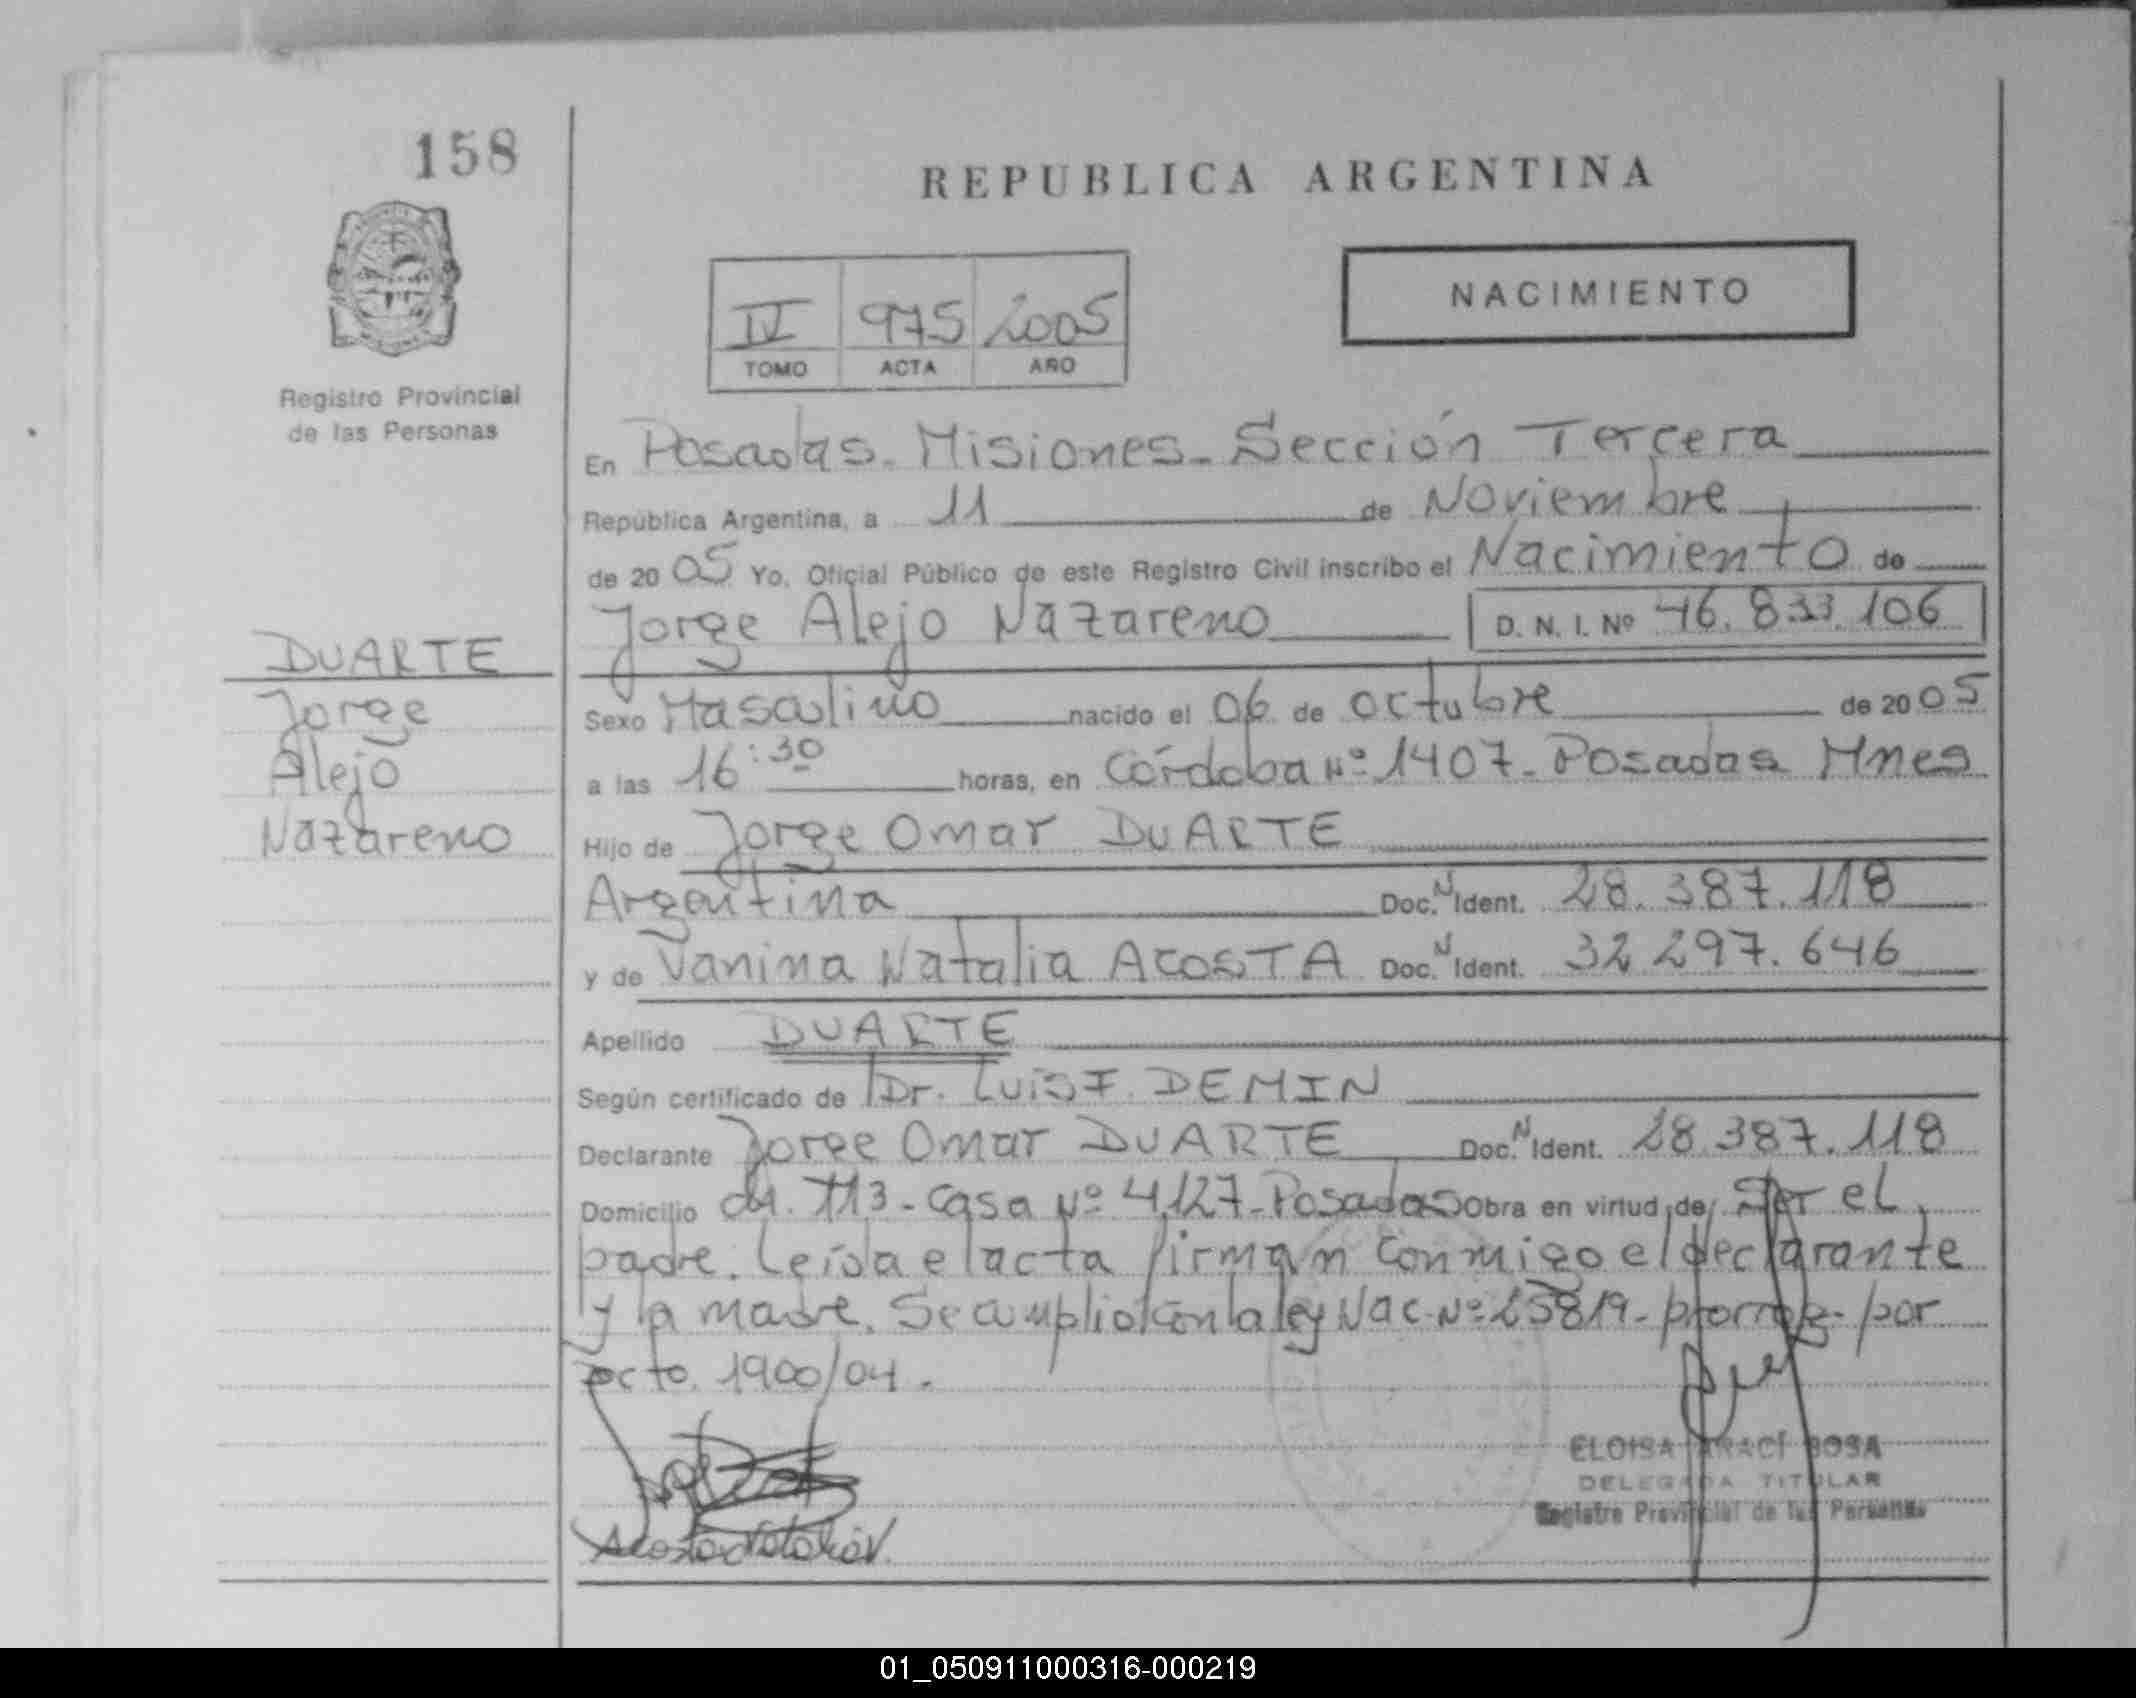 158
REPUBLICA ARGENTINA
IV 975 2005
TOMO ACTA AÑO
NACIMIENTO
Registro Provincial
de las Personas
En Posadas - Misiones - Sección Tercera
República Argentina, a 11 de Noviembre
de 2005 Yo, Oficial Público de este Registro Civil inscribo el Nacimiento de
Jorge Alejo Nazareno D. N. I. Nº 46.833.106
DUARTE
Jorge
Alejo
Nazareno
Sexo Masculino nacido el 06 de octubre de 2005
a las 16:30 horas, en Córdoba Nº 1407 - Posadas Mnes
Hijo de Jorge Omar DUARTE
Argentina Doc. N Ident. 28.387.118
y de Vanina Natalia ACOSTA Doc. N Ident. 32.297.646
Apellido DUARTE
Según certificado de Dr. Luis F. DEMIN
Declarante Jorge Omar DUARTE Doc. N Ident. 28.387.118
Domicilio 113 - Casa Nº 4127 - Posadas Obra en virtud de Ser el
padre. Leída el acta firman conmigo el declarante
y la madre. Se cumplió con la ley Nac. Nº 25819 - prorrog. por
Dcto. 1900/04.
Acosta Natalia V.
ELOISA ARACÍ SOSA
DELEGADA TITULAR
Registro Provincial de las Personas
01_050911000316-000219